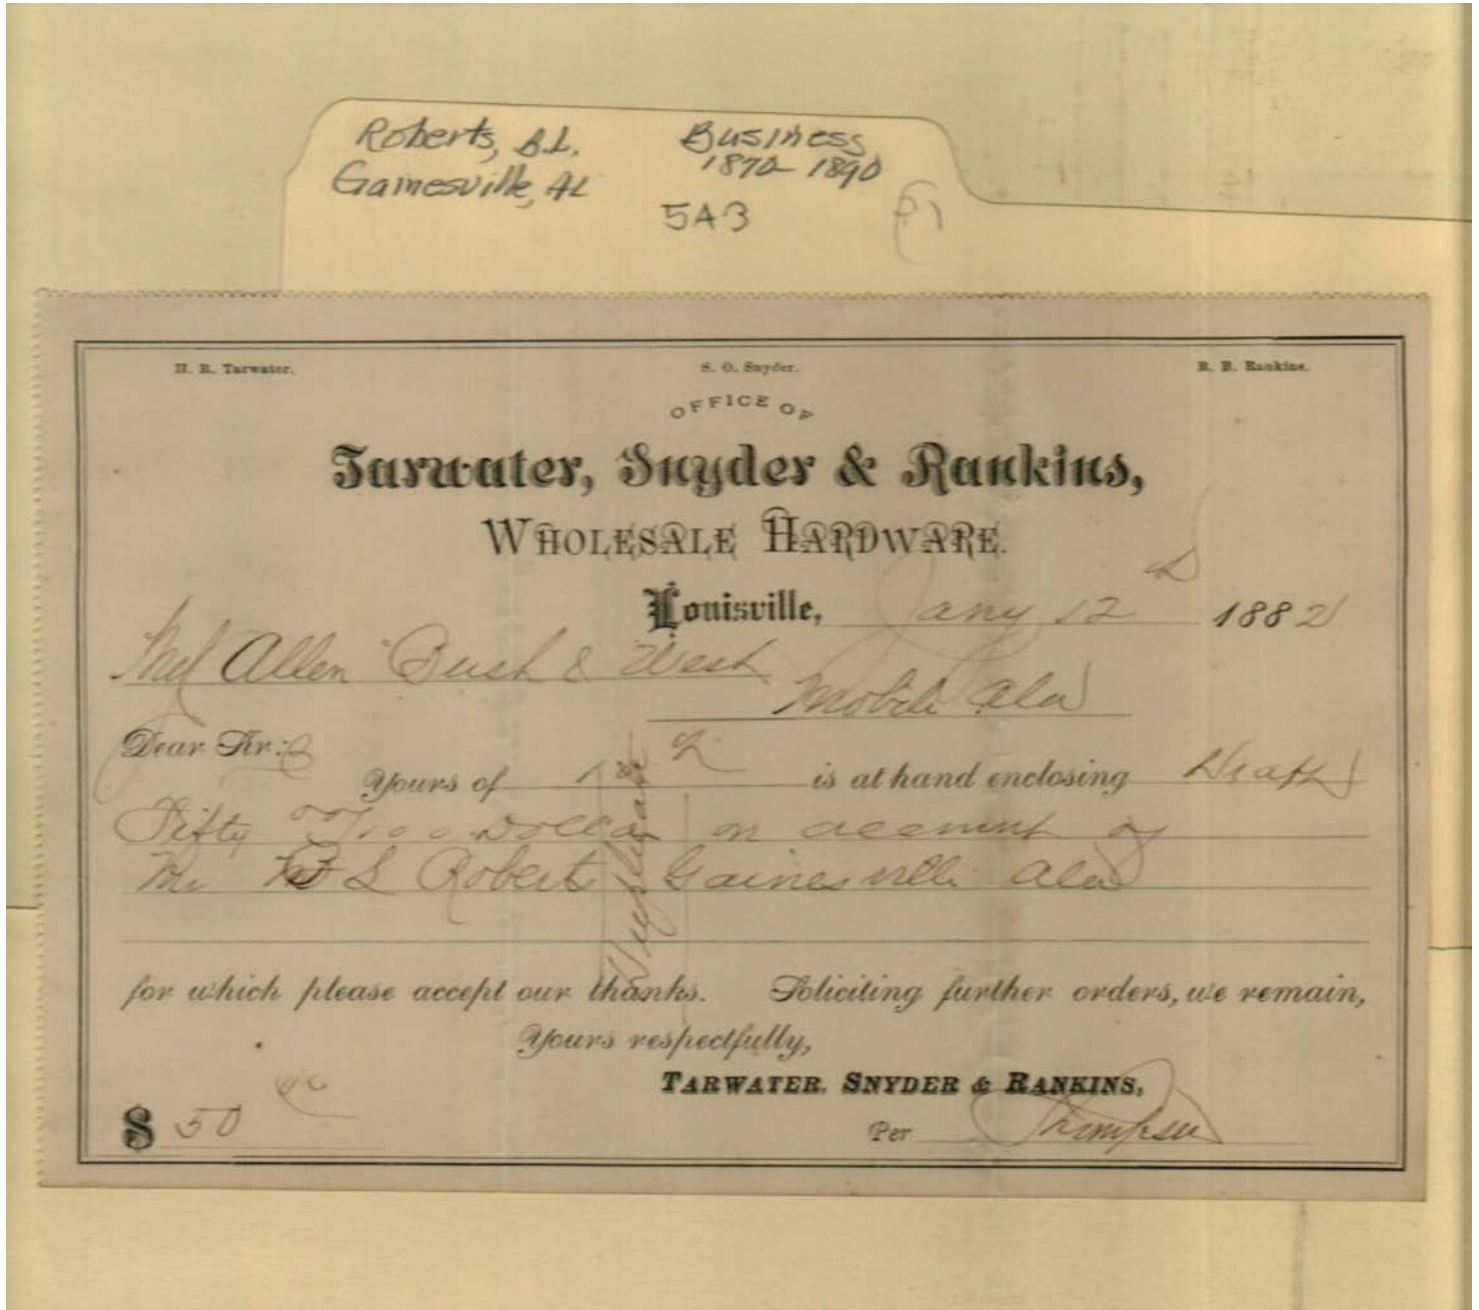 Roberts, B.L. Business
1870-1890
Gainesville, AL
5A3
H. R. Tarwater. S. O. Snyder. R. B. Rankins.
OFFICE OF
Tarwater, Snyder & Rankins,
WHOLESALE HARDWARE.
Louisville, Jany 12 1882
Allen Bush & West
Mobile Ala
Dear Sir:
Yours of is at hand enclosing Draft
Fifty Dollars on account of
Mr L Roberts Gainesville Ala
Duplicate
for which please accept our thanks. Soliciting further orders, we remain,
Yours respectfully,
TARWATER. SNYDER & RANKINS,
$ 50 Per Thompson